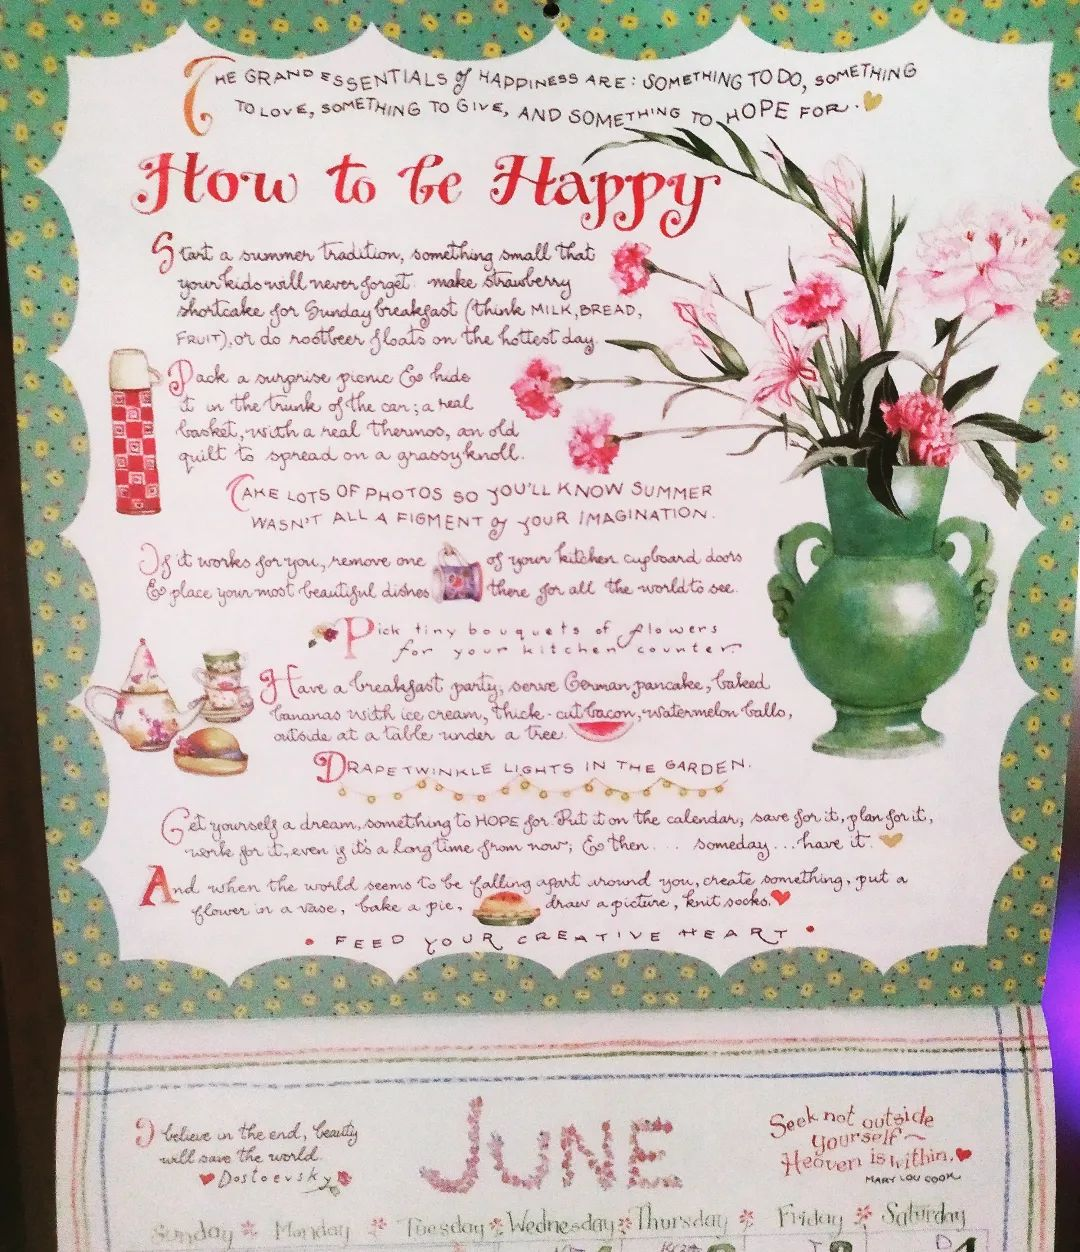 THE GRAND ESSENTIALS of HAPPINESS ARE: SOMETHING TO DO, SOMETHING
TO LOVE, SOMETHING TO GIVE, AND SOMETHING TO HOPE FOR.
How to be Happy
Start a summer tradition, something small that
your kids will never forget. make strawberry
shortcake for Sunday breakfast (think MILK, BREAD,
FRUIT), or do rootbeer floats on the hottest day.
Pack a surprise picnic & hide
it in the trunk of the car; a real
basket, with a real thermos, an old
quilt to spread on a grassy knoll.
TAKE LOTS OF PHOTOS SO YOU'LL KNOW SUMMER
WASN'T ALL A FIGMENT of YOUR IMAGINATION.
If it works for you, remove one of your kitchen cupboard doors
& place your most beautiful dishes there for all the world to see.
Pick tiny bouquets of flowers
for your kitchen counter.
Have a breakfast party, serve German pancake, baked
bananas with ice cream, thick-cut bacon, watermelon balls,
outside at a table under a tree.
DRAPE TWINKLE LIGHTS IN THE GARDEN.
Get yourself a dream, something to HOPE for. Put it on the calendar, save for it, plan for it,
work for it, even if it's a long time from now; & then... someday... have it.
And when the world seems to be falling apart around you, create something, put a
flower in a vase, bake a pie, draw a picture, knit socks.
• FEED YOUR CREATIVE HEART •
I believe in the end, beauty
will save the world.
Dostoevsky
JUNE
Seek not outside
yourself~
Heaven is within.
MARY LOU COOK
Sunday Monday Tuesday Wednesday Thursday Friday Saturday